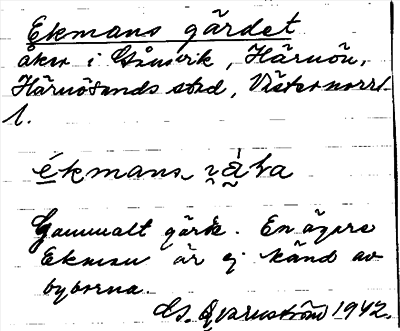 Ekmans gärdet
åker i Gånsvik, Härnön,
Härnösands stad, Västernorrl.
l.
ékmans
Gammalt gärde. En ägare
Ekman är ej känd av
byborna.
Qvarnström 1942.